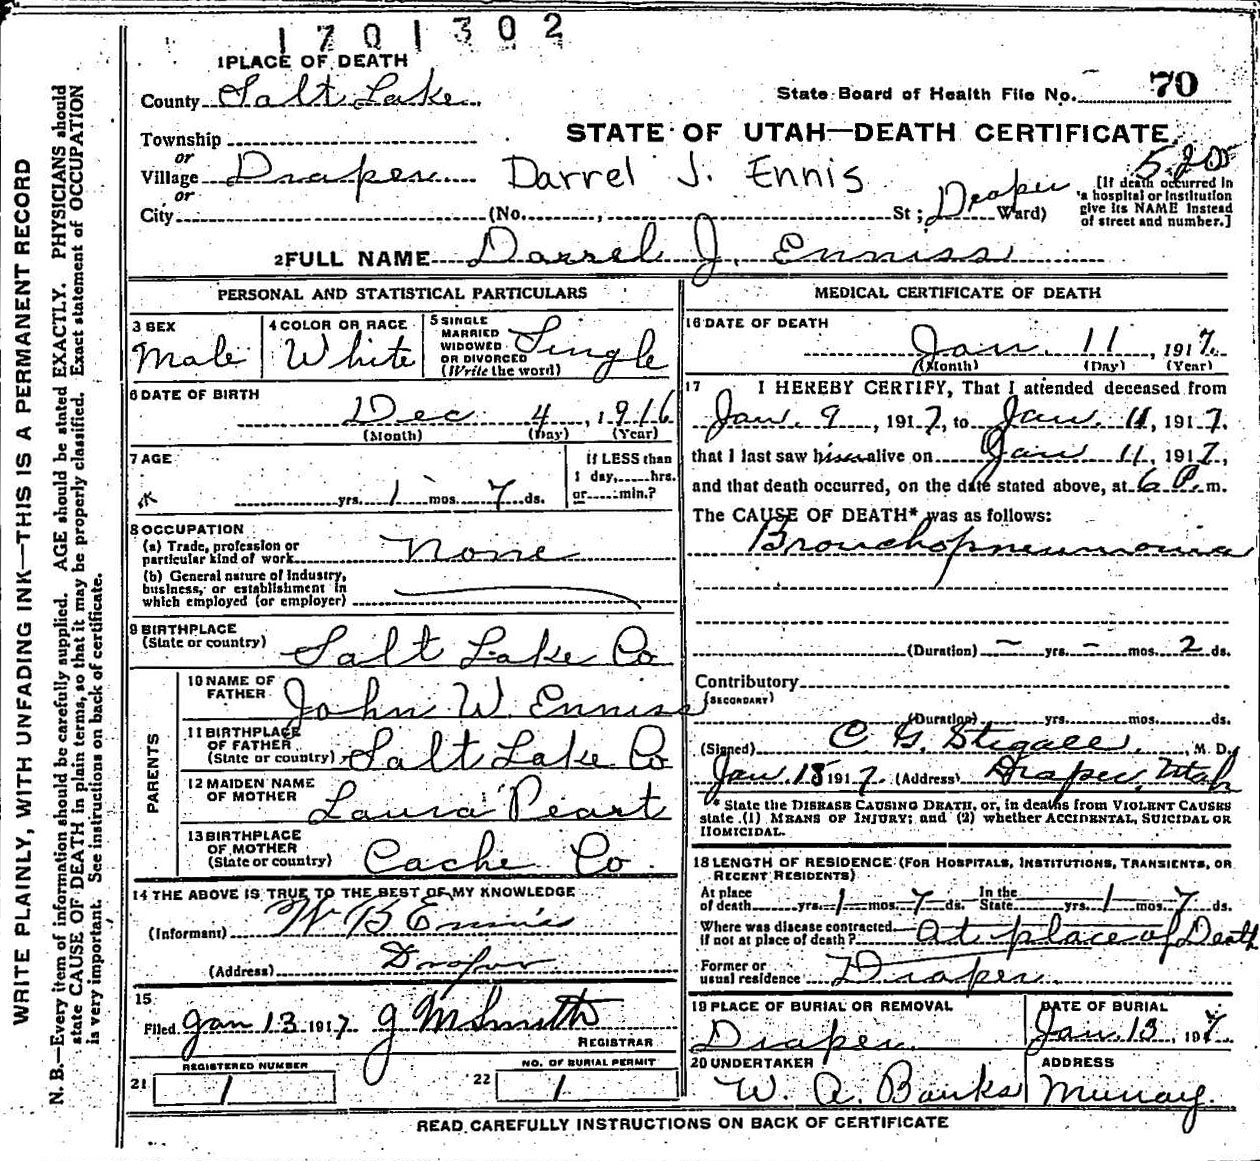 1701302
1 PLACE OF DEATH
County Salt Lake
State Board of Health File No. 70
Township
or
Village Draper
or
City
STATE OF UTAH—DEATH CERTIFICATE
Darrel J. Ennis
(No. , St ; Draper Ward)
[If death occurred in
a hospital or institution
give its NAME instead
of street and number.]
2 FULL NAME Darrel J. Enniss
PERSONAL AND STATISTICAL PARTICULARS
3 SEX
Male
4 COLOR OR RACE
White
5 SINGLE
MARRIED
WIDOWED
OR DIVORCED
(Write the word)
Single
6 DATE OF BIRTH
Dec 4, 1916
(Month) (Day) (Year)
7 AGE
yrs. 1 mos. 7 ds.
if LESS than
1 day, hrs.
or min.?
8 OCCUPATION
(a) Trade, profession or
particular kind of work None
(b) General nature of industry,
business, or establishment in
which employed (or employer)
9 BIRTHPLACE
(State or country) Salt Lake Co
PARENTS
10 NAME OF
FATHER John W. Enniss
11 BIRTHPLACE
OF FATHER
(State or country) Salt Lake Co
12 MAIDEN NAME
OF MOTHER Laura Peart
13 BIRTHPLACE
OF MOTHER
(State or country) Cache Co.
14 THE ABOVE IS TRUE TO THE BEST OF MY KNOWLEDGE
(Informant) W B Ennis
(Address) Draper
15
Filed Jan 13 1917 J M Smith
REGISTRAR
REGISTERED NUMBER
21 1
NO. OF BURIAL PERMIT
22 1
MEDICAL CERTIFICATE OF DEATH
16 DATE OF DEATH
Jan. 11, 1917.
(Month) (Day) (Year)
17 I HEREBY CERTIFY, That I attended deceased from
Jan. 9, 1917, to Jan. 11, 1917.
that I last saw him alive on Jan 11, 1917,
and that death occurred, on the date stated above, at 6 P. m.
The CAUSE OF DEATH* was as follows:
Bronchopneumonia
(Duration) – yrs. – mos. 2 ds.
Contributory
(SECONDARY)
(Duration) yrs. mos. ds.
(Signed) C G Stegall, M. D.
Jan 15 1917. (Address) Draper, Utah
* State the DISEASE CAUSING DEATH, or, in deaths from VIOLENT CAUSES
state (1) MEANS OF INJURY; and (2) whether ACCIDENTAL, SUICIDAL OR
HOMICIDAL.
18 LENGTH OF RESIDENCE (FOR HOSPITALS, INSTITUTIONS, TRANSIENTS, OR
RECENT RESIDENTS)
At place
of death yrs. 1 mos. 7 ds. In the
State yrs. 1 mos. 7 ds.
Where was disease contracted
if not at place of death? At place of Death
Former or
usual residence Draper
19 PLACE OF BURIAL OR REMOVAL
Draper
DATE OF BURIAL
Jan. 13, 1917
20 UNDERTAKER
W. A. Banks
ADDRESS
Murray.
READ CAREFULLY INSTRUCTIONS ON BACK OF CERTIFICATE
WRITE PLAINLY, WITH UNFADING INK—THIS IS A PERMANENT RECORD
N. B.—Every item of information should be carefully supplied. AGE should be stated EXACTLY. PHYSICIANS should
state CAUSE OF DEATH in plain terms, so that it may be properly classified. Exact statement of OCCUPATION
is very important. See instructions on back of certificate.